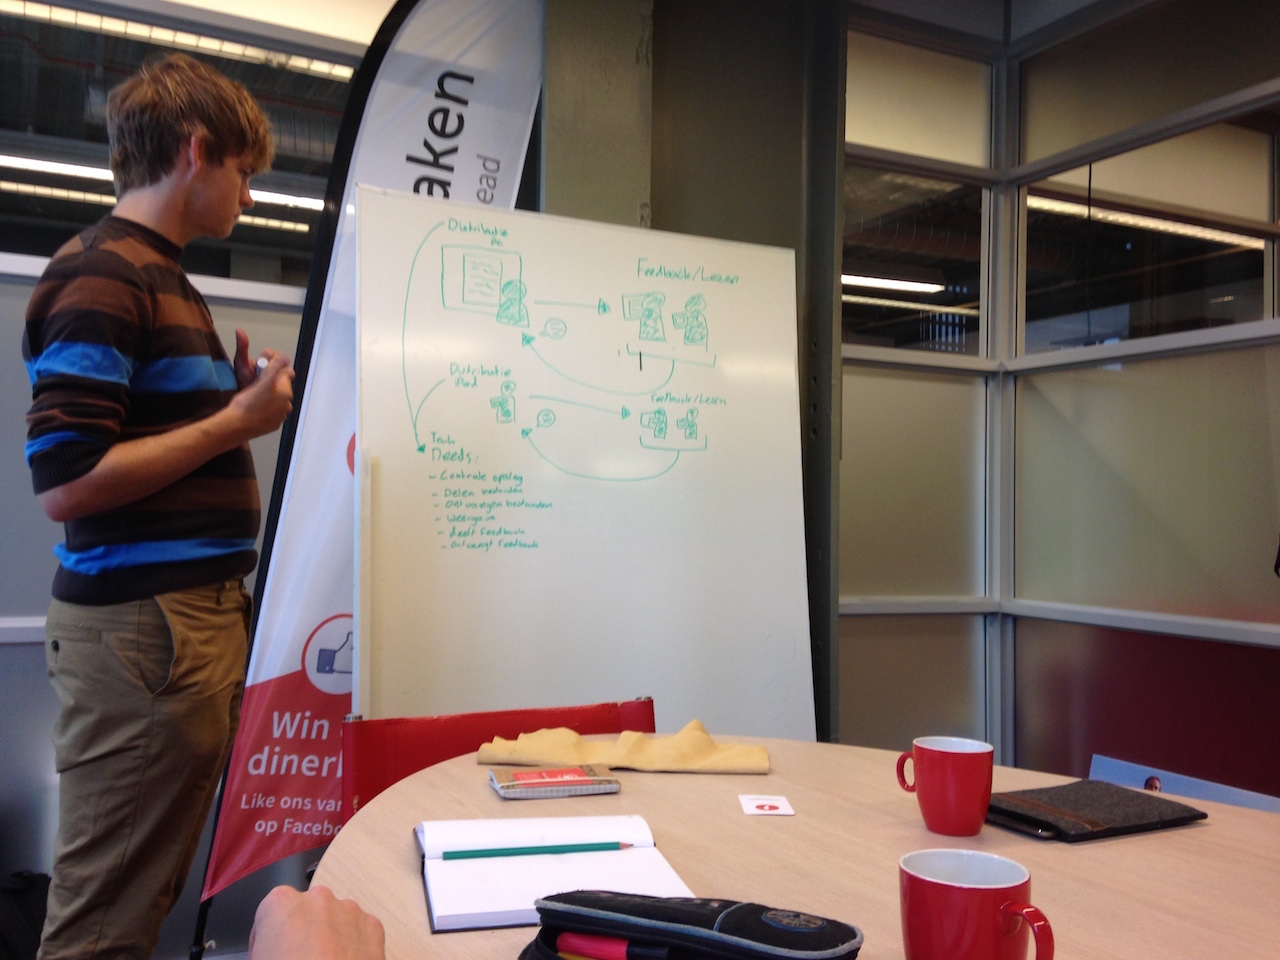 aken
ead
Distributie
PC
Feedback/Lezen
Distributie
iPad
Feedback/Lezen
Tech
Needs:
- Centrale opslag
- Delen bestanden
- Ontvangen bestanden
- Weergave
- deelt Feedback
- ontvangt Feedback
Win
diner
Like ons van
op Facebo